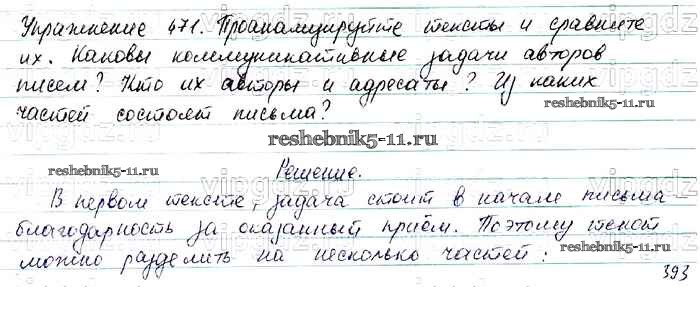 Упражнение 471. Проанализируйте тексты и сравните
их. Каковы коммуникативные задачи авторов
писем? Кто их авторы и адресаты? Из каких
частей состоят письма?
reshebnik5-11.ru
reshebnik5-11.ru
reshebnik5-11.ru
Решение.
В первом тексте, задача стоит в начале письма
благодарность за оказанный приём. Поэтому текст
можно разделить на несколько частей:
reshebnik5-11.ru
393